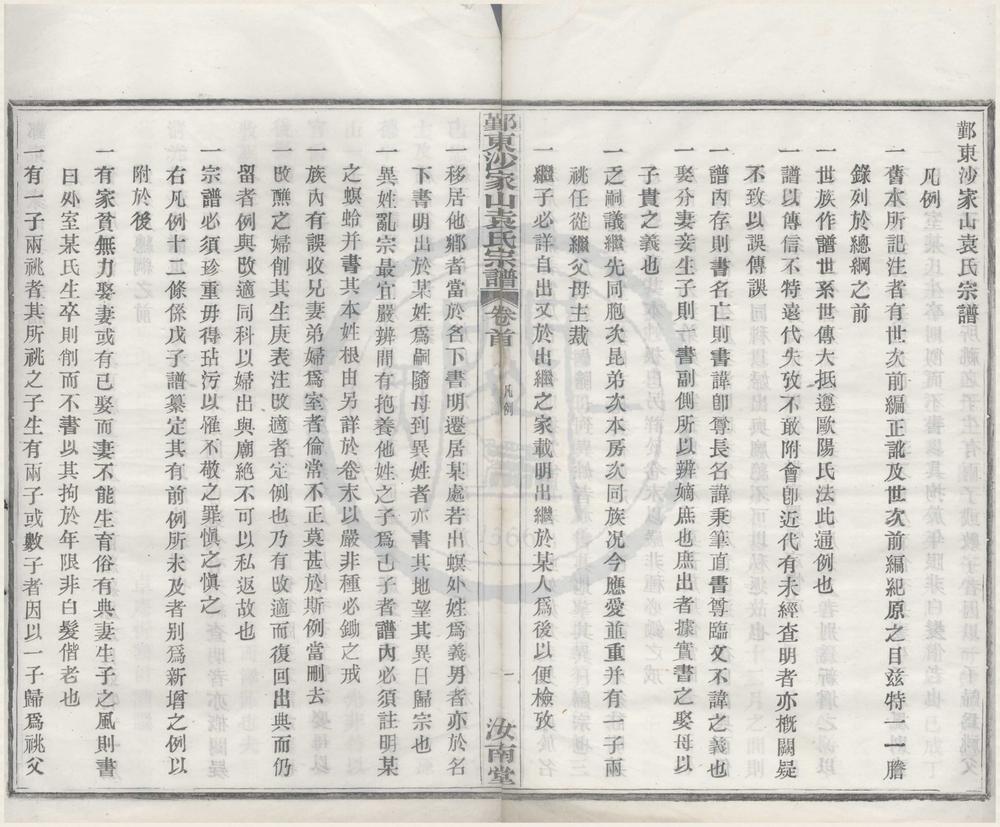 鄞東沙家山袁氏宗譜
凡例
一舊本所記注者有世次前編正訛及世次前編紀原之目茲特一一謄
錄列於總綱之前
一世族作譜世系世傳大抵遵歐陽氏法此通例也
一譜以傳信不特遠代失攷不敢附會卽近代有未經查明者亦概闕疑
不致以誤傳誤
一譜內存則書名亡則書諱卽尊長名諱秉筆直書尊臨文不諱之義也
一娶分妻妾生子則另書副側所以辨嫡庶也庶出者據實書之娶母以
子貴之義也
一乏嗣議繼先同胞次昆弟次本房次同族況今應愛並重并有一子兩
祧任從繼父母主裁
一繼子必詳自出又於出繼之家載明出繼於某人爲後以便檢攷
鄞東沙家山袁氏宗譜 卷首 凡例 一 汝南堂
一移居他鄉者當於名下書明遷居某處若出螟外姓爲義男者亦於名
下書明出於某姓爲嗣隨母到異姓者亦書其地望其異日歸宗也
一異姓亂宗最宜嚴辨間有抱養他姓之子爲己子者譜內必須註明某
之螟蛉并書其本姓根由另詳於卷末以嚴非種必鋤之戒
一族內有誤收兄妻弟婦爲室者倫常不正莫甚於斯例當刪去
一改醮之婦削其生庚表注改適者定例也乃有改適而復回出典而仍
留者例與改適同科以婦出與廟絕不可以私返故也
一宗譜必須珍重毋得玷污以罹不敬之罪愼之愼之
右凡例十二條係戊子譜纂定其有前例所未及者別爲新增之例以
附於後
一有家貧無力娶妻或有已娶而妻不能生育俗有典妻生子之風則書
曰外室某氏生卒則削而不書以其拘於年限非白髮偕老也
一有一子兩祧者其所祧之子生有兩子或數子者因以一子歸爲祧父